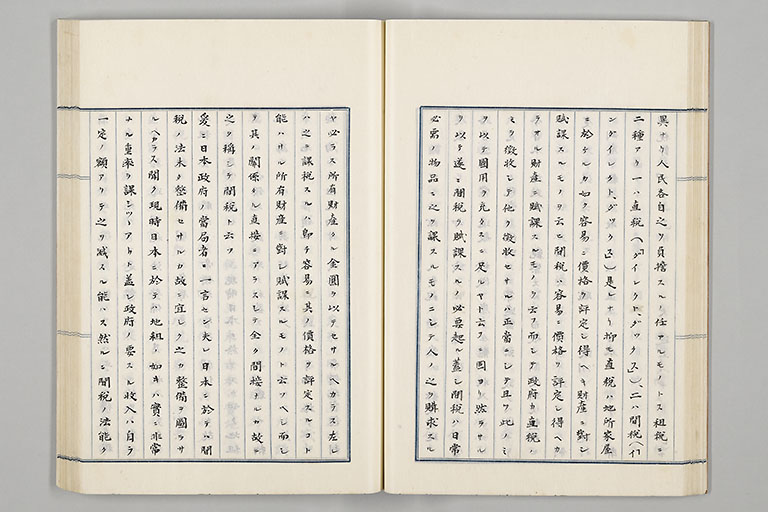 異ナリ人民各自之ヲ負擔スルノ任アルモノトス租税ニ
二種アリ一ハ直税(「ダイレクト、タックス」)、二ハ間税(「イ
ンダイレクト、タックス」)是レナリ抑モ直税ハ地所家屋
ニ於ケルカ如ク容易ニ價格ヲ評定シ得ヘキ財産ニ對シ
賦課スルモノヲ云ヒ間税ハ容易ニ價格ヲ評定シ得ヘカ
ラサル財産ニ賦課スルモノヲ云フ而シテ政府カ直税ノ
ミヲ徴收シテ他ヲ徴收セサルハ正當ニシテ且ツ此ノミ
ヲ以テ國用ヲ充タスニ足ルヤト云フニ固ヨリ然ラサル
ヲ以テ遂ニ間税ヲ賦課スルノ必要起ル蓋シ間税ハ日常
必需ノ物品ニ之ヲ課スルモノニシテ人ノ之ヲ購求スル
ヤ必ラス所有財産タル金圓ヲ以テセサルヘカラス左レ
ハ之ニ課税スルハ即チ容易ニ其ノ價格ヲ評定スルコト
能ハサル所有財産ニ對シ賦課スルモノト云フヘシ而シ
テ其ノ關係タル直接ニアラスシテ全ク間接ナルカ故ニ
之ヲ稱シテ間税ト云フ
爰ニ日本政府ノ當局者ニ一言セン夫レ日本ニ於テハ間
税ノ法未タ整備セサルカ故ニ宜シク之カ整備ヲ圖ラサ
ルヘカラス聞ク現時日本ニ於テハ地租ノ如キハ實ニ非常
ナル重率ヲ課シツヽアリト蓋シ政府ノ要スル收入ハ自ラ
一定ノ額アリテ之ヲ減スル能ハス然ルニ間税ノ法能ク